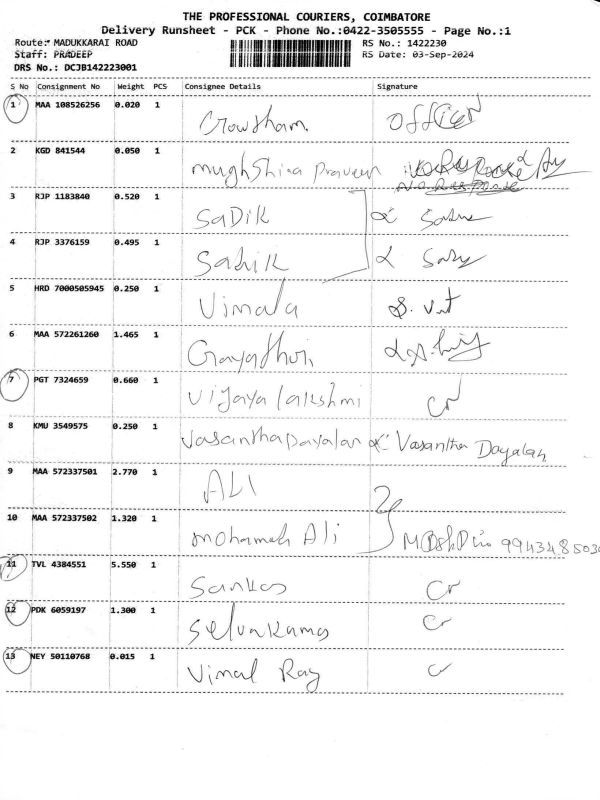 THE PROFESSIONAL COURIERS, COIMBATORE
Delivery Runsheet - PCK - Phone No.:0422-3505555 - Page No.:1
Route: MADUKKARAI ROAD RS No.: 1422230
Staff: PRADEEP RS Date: 03-Sep-2024
DRS No.: DCJB142223001
S No Consignment No Weight PCS Consignee Details Signature
1 MAA 108526256 0.020 1 Crowtham
2 KGD 841544 0.050 1 mughshira praveen
3 RJP 1183840 0.520 1 SADIK
4 RJP 3376159 0.495 1 Sadik
5 HRD 7000505945 0.250 1 Vimala
6 MAA 572261260 1.465 1 Gayathri
7 PGT 7324659 0.660 1 vijaya lakshmi Cr
8 KMU 3549575 0.250 1 Vasanthadayalan Vasantha Dayalan
9 MAA 572337501 2.770 1 ALI
10 MAA 572337502 1.320 1 mohamah Ali
11 TVL 4384551 5.550 1 Sankas Cr
12 PDK 6059197 1.300 1 Selvakumar Cr
13 NEY 50110768 0.015 1 Vimal Ray Cr